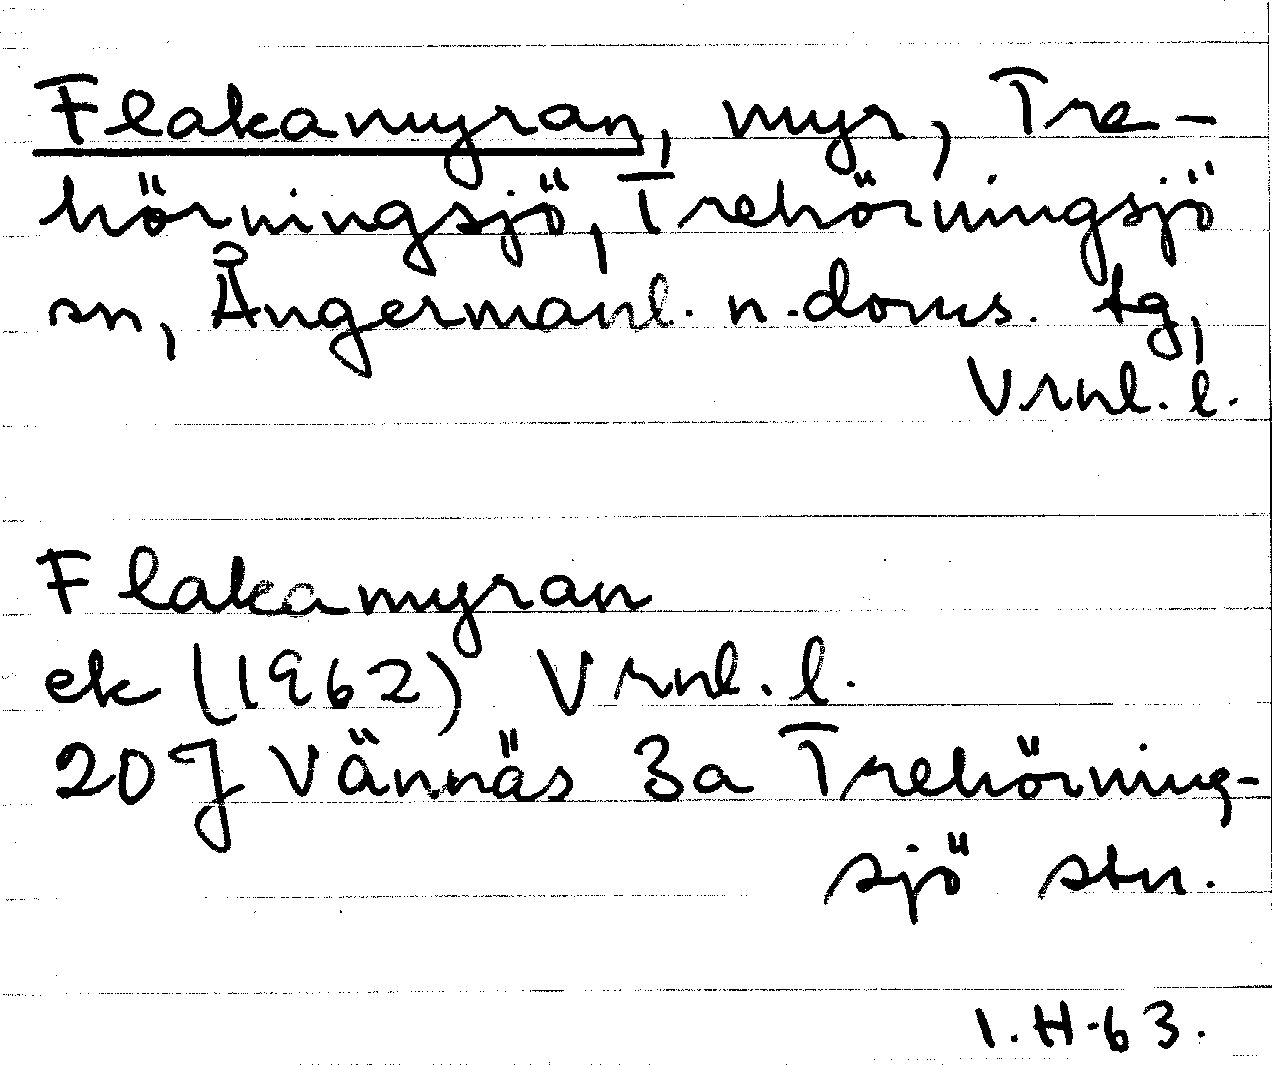 Flakamyran, myr, Tre-
hörningsjö, Trehörningsjö
sn, Ångermanl. n. doms. tg,
Vrnl. l.
Flakamyran
ek (1962) Vrnl. l.
20J Vännäs 3a Trehörning-
sjö stn.
I.H-63.